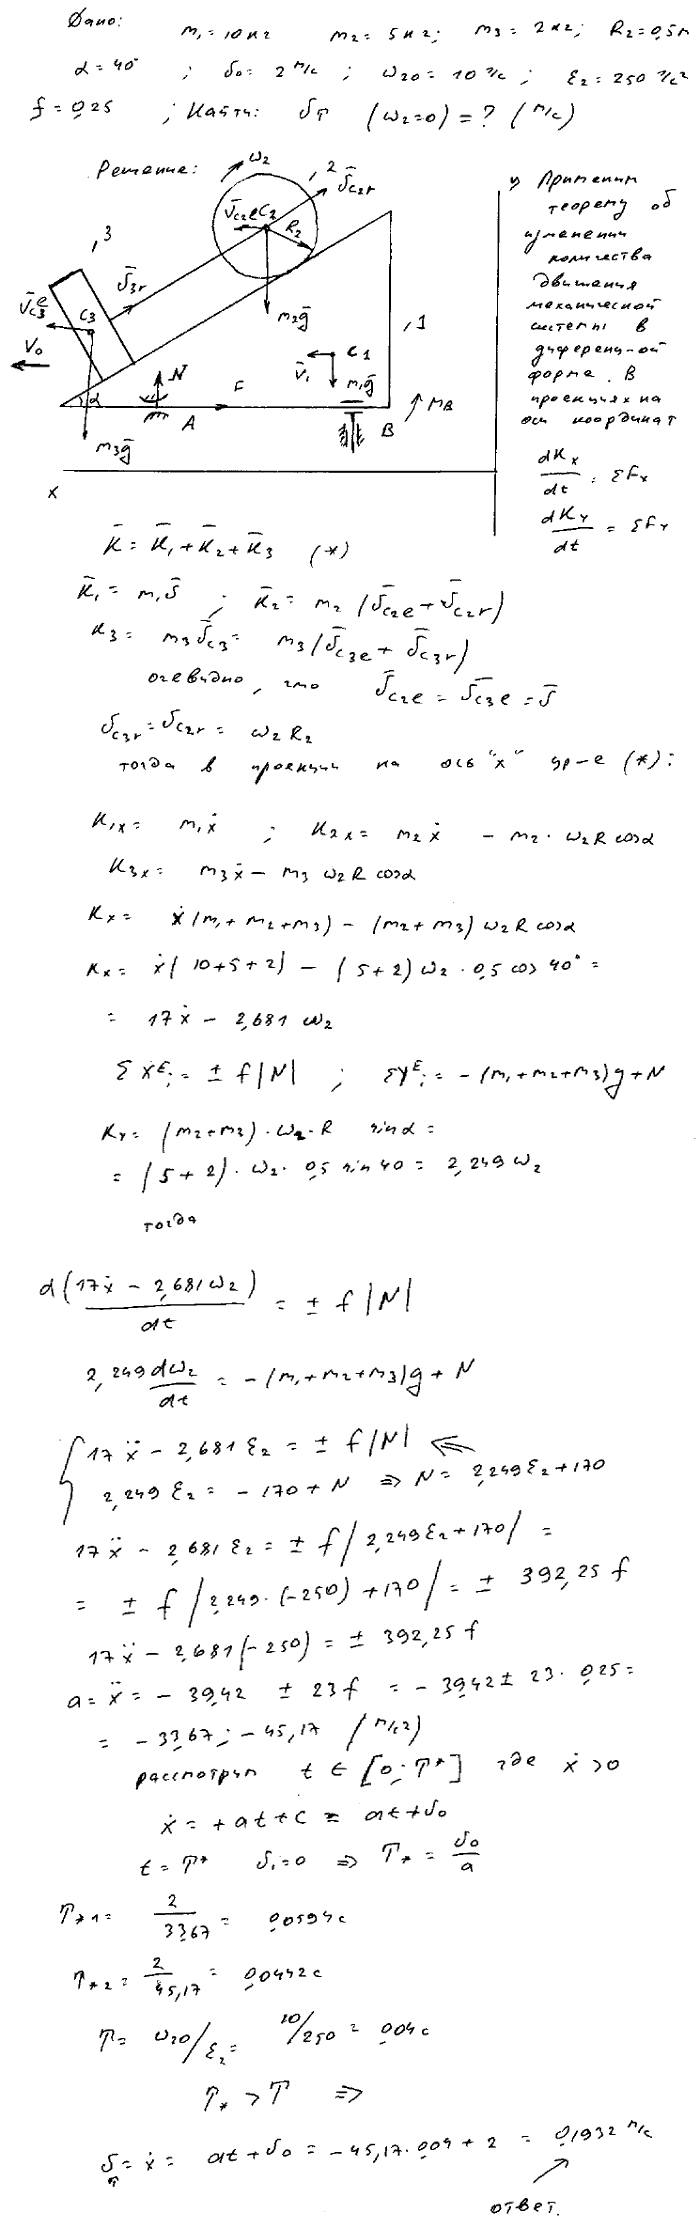 Дано: m₁=10кг m₂=5кг; m₃=2кг; R₂=0,5м
α=40° ; υ₀=2 м/с ; ω₂₀=10 1/с ; ε₂=250 1/с²
f=0,25 ; Найти: υт (ω₂=0)=? (м/с)
Решение:
ω₂
, 2
ῡc₂r
ῡc₂e C₂
R₂
, 3
ῡ₃r
ῡc₃e
C₃
m₂g̅
V₀
, 1
C₁
V̅₁
m₁g̅
N
F
α
A
B
MB
m₃g̅
x
1) Применим
теорему об
изменении
количества
движения
механической
системы в
диференц-ой
форме. В
проекциях на
оси координат
dKx/dt = ΣFx
dKy/dt = ΣFy
K̅ = K̅₁+K̅₂+K̅₃ (*)
K̅₁ = m₁ῡ ; K̅₂ = m₂(ῡc₂e+ῡc₂r)
K₃ = m₃ῡc₃ = m₃(ῡc₃e+ῡc₃r)
очевидно, что ῡc₂e = ῡc₃e = ῡ
υc₃r = υc₂r = ω₂R₂
тогда в проекции на ось "x" ур-е (*):
K₁x = m₁ẋ ; K₂x = m₂ẋ - m₂·ω₂R cosα
K₃x = m₃ẋ - m₃ω₂R cosα
Kx = ẋ(m₁+m₂+m₃) - (m₂+m₃)ω₂R cosα
Kx = ẋ(10+5+2) - (5+2)ω₂·0,5 cos 40° =
= 17ẋ - 2,681 ω₂
ΣXᴱi = ± f|N| ; ΣYᴱi = -(m₁+m₂+m₃)g+N
Ky = (m₂+m₃)·ω₂·R sinα =
= (5+2)·ω₂·0,5 sin 40 = 2,249ω₂
тогда
d(17ẋ - 2,681ω₂)/dt = ± f|N|
2,249dω₂/dt = -(m₁+m₂+m₃)g+N
17ẍ - 2,681ε₂ = ± f|N| ⇐
2,249ε₂ = -170+N ⇒ N = 2,249ε₂+170
17ẍ - 2,681ε₂ = ± f|2,249ε₂+170| =
= ± f|2,249·(-250)+170| = ± 392,25 f
17ẍ - 2,681(-250) = ± 392,25 f
a = ẍ = -39,42 ± 23f = -39,42 ± 23·0,25 =
= -33,67 ; -45,17 (м/с²)
рассмотрим t ∈ [0; T*] где ẋ>0
ẋ = +at+c = at+υ₀
t = T* υ₁=0 ⇒ T* = υ₀/a
T*₁ = 2/33,67 = 0,0594с
T*₂ = 2/45,17 = 0,0442с
T = ω₂₀/ε₂ = 10/250 = 0,04с
T* > T ⇒
υт = ẋ = at+υ₀ = -45,17·0,04+2 = 0,1932 м/с
ответ.